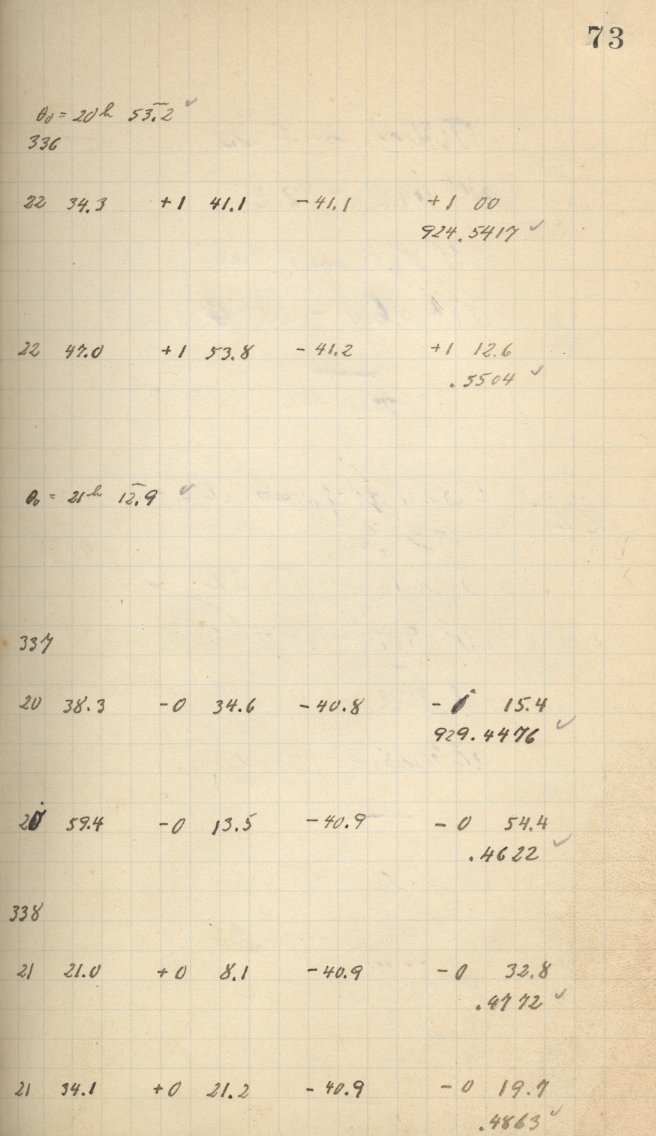 73
θ₀ = 20 h 53.2 ✓
336
22 34.3 +1 41.1 -41.1 +1 00
924.5417 ✓
22 47.0 +1 53.8 -41.2 +1 12.6
.5504 ✓
θ₀ = 21 h 12.9 ✓
337
20 38.3 -0 34.6 -40.8 -1 15.4
929.4476 ✓
20 59.4 -0 13.5 -40.9 -0 54.4
.4622 ✓
338
21 21.0 +0 8.1 -40.9 -0 32.8
.4772 ✓
21 34.1 +0 21.2 -40.9 -0 19.7
.4863 ✓